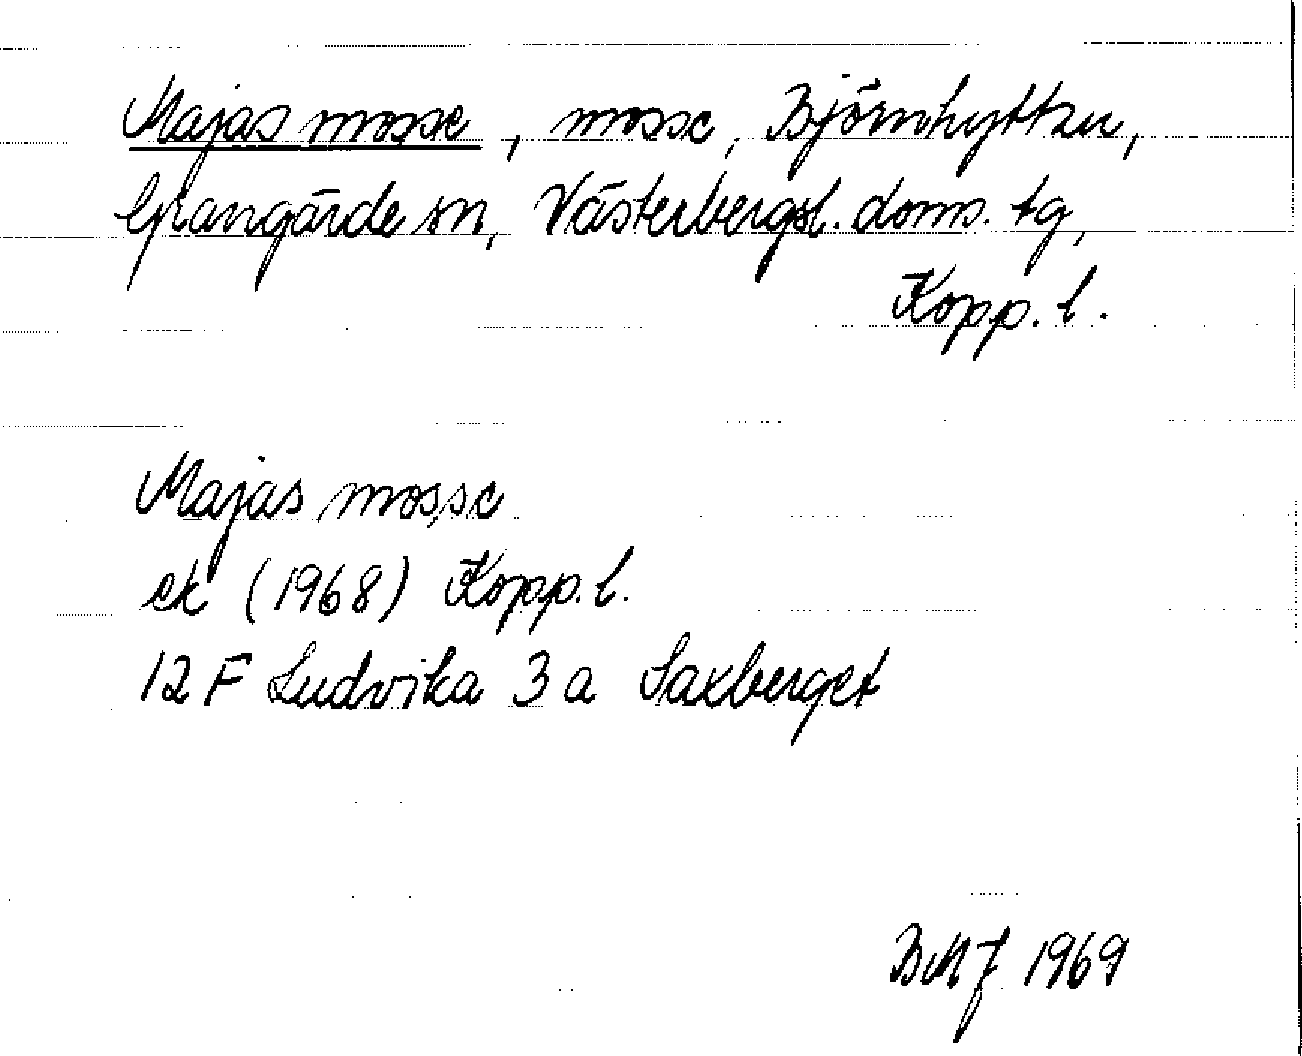 Majas mosse, mosse, Björnhyttan,
Grangärde sn, Västerbergsl. doms. tg,
Kopp. l.
Majas mosse
ek (1968) Kopp. l.
12 F Ludvika 3 a Saxberget
BMJ 1969